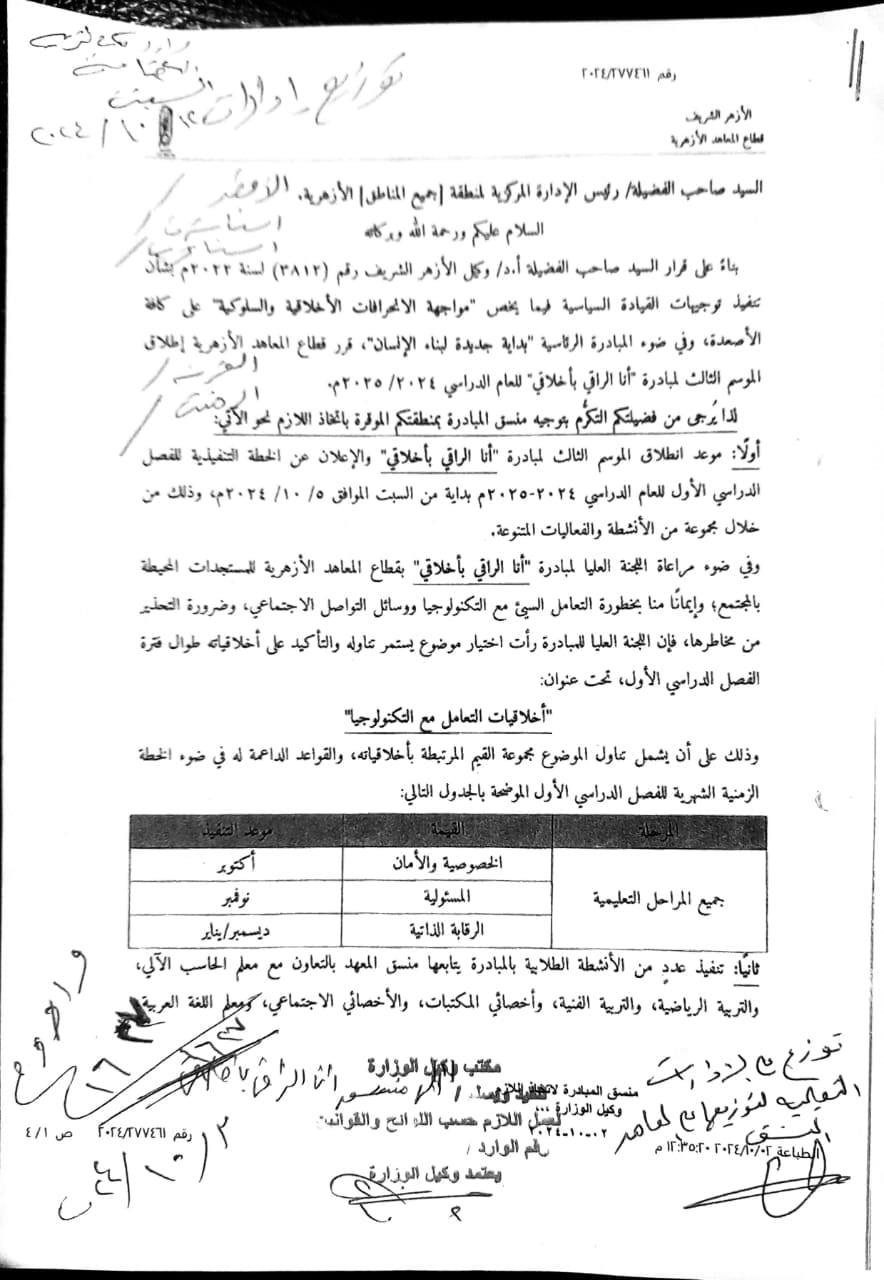 رقم ٢٠٢٤/٢٧٧٤٦١
توزيع إدارات
السبت
١٢/١٠/٢٠٢٤
الأزهر الشريف
قطاع المعاهد الأزهرية
السيد صاحب الفضيلة/ رئيس الإدارة المركزية لمنطقة [جميع المناطق] الأزهرية.
السلام عليكم ورحمة الله وبركاته
بناءً على قرار السيد صاحب الفضيلة أ.د/ وكيل الأزهر الشريف رقم (٣٨١٢) لسنة ٢٠٢٢م بشأن
تنفيذ توجيهات القيادة السياسية فيما يخص "مواجهة الانحرافات الأخلاقية والسلوكية" على كافة
الأصعدة، وفي ضوء المبادرة الرئاسية "بداية جديدة لبناء الإنسان"، قرر قطاع المعاهد الأزهرية إطلاق
الموسم الثالث لمبادرة "أنا الراقي بأخلاقي" للعام الدراسي ٢٠٢٤/ ٢٠٢٥م.
لذا يُرجى من فضيلتكم التكرُّم بتوجيه منسق المبادرة بمنطقتكم الموقرة باتخاذ اللازم نحو الآتي:
أولًا: موعد انطلاق الموسم الثالث لمبادرة "أنا الراقي بأخلاقي" والإعلان عن الخطة التنفيذية للفصل
الدراسي الأول للعام الدراسي ٢٠٢٤-٢٠٢٥م بداية من السبت الموافق ٥/ ١٠/ ٢٠٢٤م، وذلك من
خلال مجموعة من الأنشطة والفعاليات المتنوعة.
وفي ضوء مراعاة اللجنة العليا لمبادرة "أنا الراقي بأخلاقي" بقطاع المعاهد الأزهرية للمستجدات المحيطة
بالمجتمع؛ وإيمانًا منا بخطورة التعامل السيئ مع التكنولوجيا ووسائل التواصل الاجتماعي، وضرورة التحذير
من مخاطرها، فإن اللجنة العليا للمبادرة رأت اختيار موضوع يستمر تناوله والتأكيد على أخلاقياته طوال فترة
الفصل الدراسي الأول، تحت عنوان:
"أخلاقيات التعامل مع التكنولوجيا"
وذلك على أن يشمل تناول الموضوع مجموعة القيم المرتبطة بأخلاقياته، والقواعد الداعمة له في ضوء الخطة
الزمنية الشهرية للفصل الدراسي الأول الموضحة بالجدول التالي:
المرحلة القيمة موعد التنفيذ
جميع المراحل التعليمية
الخصوصية والأمان أكتوبر
المسئولية نوفمبر
الرقابة الذاتية ديسمبر/يناير
ثانيًا: تنفيذ عددٍ من الأنشطة الطلابية بالمبادرة يتابعها منسق المعهد بالتعاون مع معلم الحاسب الآلي،
والتربية الرياضية، والتربية الفنية، وأخصائي المكتبات، والأخصائي الاجتماعي، ومعلم اللغة العربية
مكتب وكيل الوزارة
منسق المبادرة لاتخاذ اللازم
وكيل الوزارة ...
٠٢-١٠-٢٠٢٤
لعمل اللازم حسب اللوائح والقوانين
رقم الوارد /
يعتمد وكيل الوزارة
رقم ٢٠٢٤/٢٧٧٤٦١
ص ٤/١
الطباعة ٢٠٢٤/١٠/٠٢ ١٢:٣٥:٢٠ م